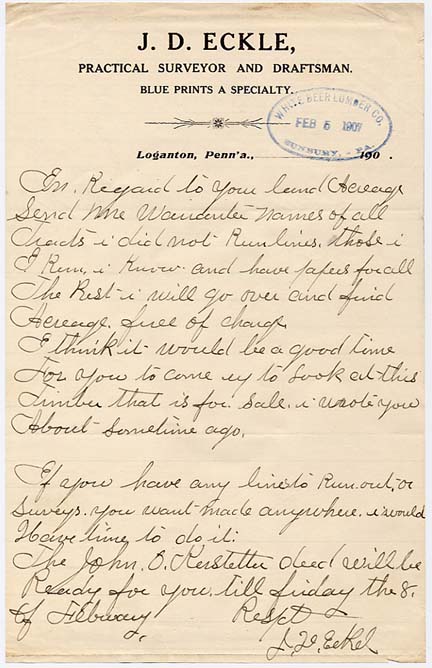 J. D. ECKLE,
PRACTICAL SURVEYOR AND DRAFTSMAN.
BLUE PRINTS A SPECIALTY.
WHITE DEER LUMBER CO.
FEB 5 1907
SUNBURY, - PA.
Loganton, Penn'a., 190 .
In. Regard to your land Acreage
Send me Warrantee names of all
Tracts i did not Run lines. those i
I Run, i Know and have papers for all
The Rest i will go over and find
Acreage. free of charge.
I think it would be a good time
For you to come up to Look at this
timber that is for Sale. i wrote you
About Sometime ago.
If you have any lines to Run out, or
Surveys. you want made anywhere. i would
Have time to do it.
The John. D. Kerstetter deed will be
Ready for you. till friday the 8.
of Febuary. Respt
J. D. Eckel